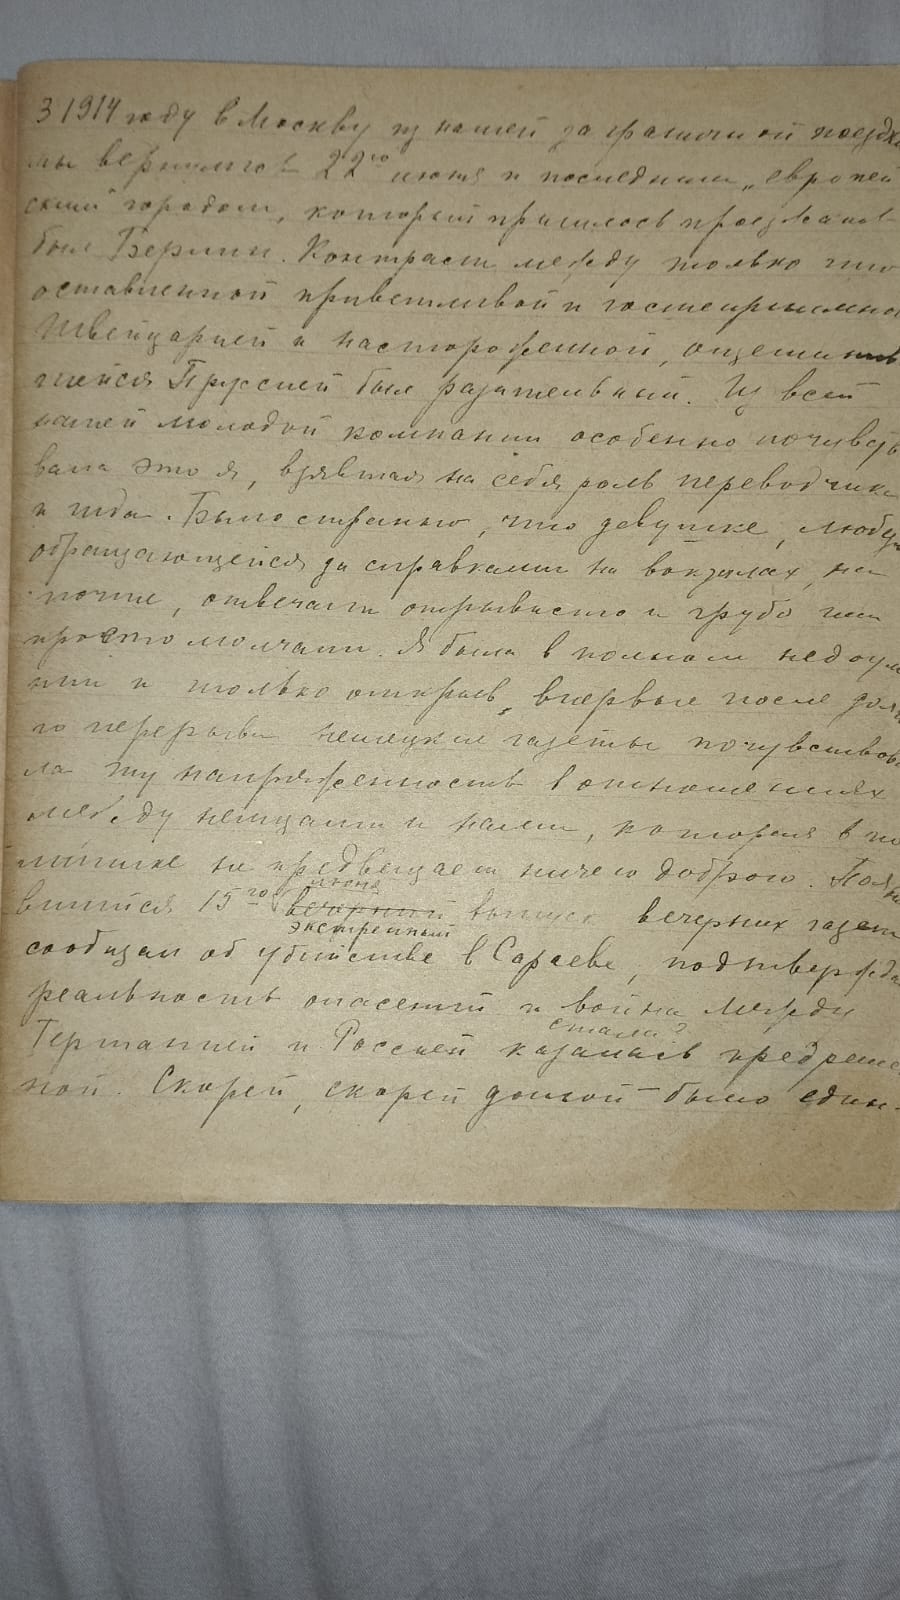 В 1914 году в Москву из нашей заграничной поездки
мы вернулись 22го июня и последним „европей
ским" городом, который пришлось проезжать
был Берлин. Контраст между только что
оставленной приветливой и гостеприимной
Швейцарией и настороженной, ощетинив
шейся Пруссией был разительный. Из всей
нашей молодой компании особенно почувство
вала это я, взявшая на себя роль переводчика
и гида. Было странно, что девушке,
обращающейся за справками на вокзалах, на
почте, отвечали отрывисто и грубо или
просто молчали. Я была в полном недоуме
нии и только открыв, впервые после долго
го перерыва немецкие газеты почувствова
ла ту напряженность в отношениях
между немцами и нами, которая в по
литике не предвещает ничего доброго. Появи
вшийся 15го июня вечерний экстренный выпуск вечерних газет
сообщал об убийстве в Сараеве, подтверждал
реальность опасений и война между
Германией и Россией казалась стала? предрешен
ной. Скорей, скорей домой – было един-